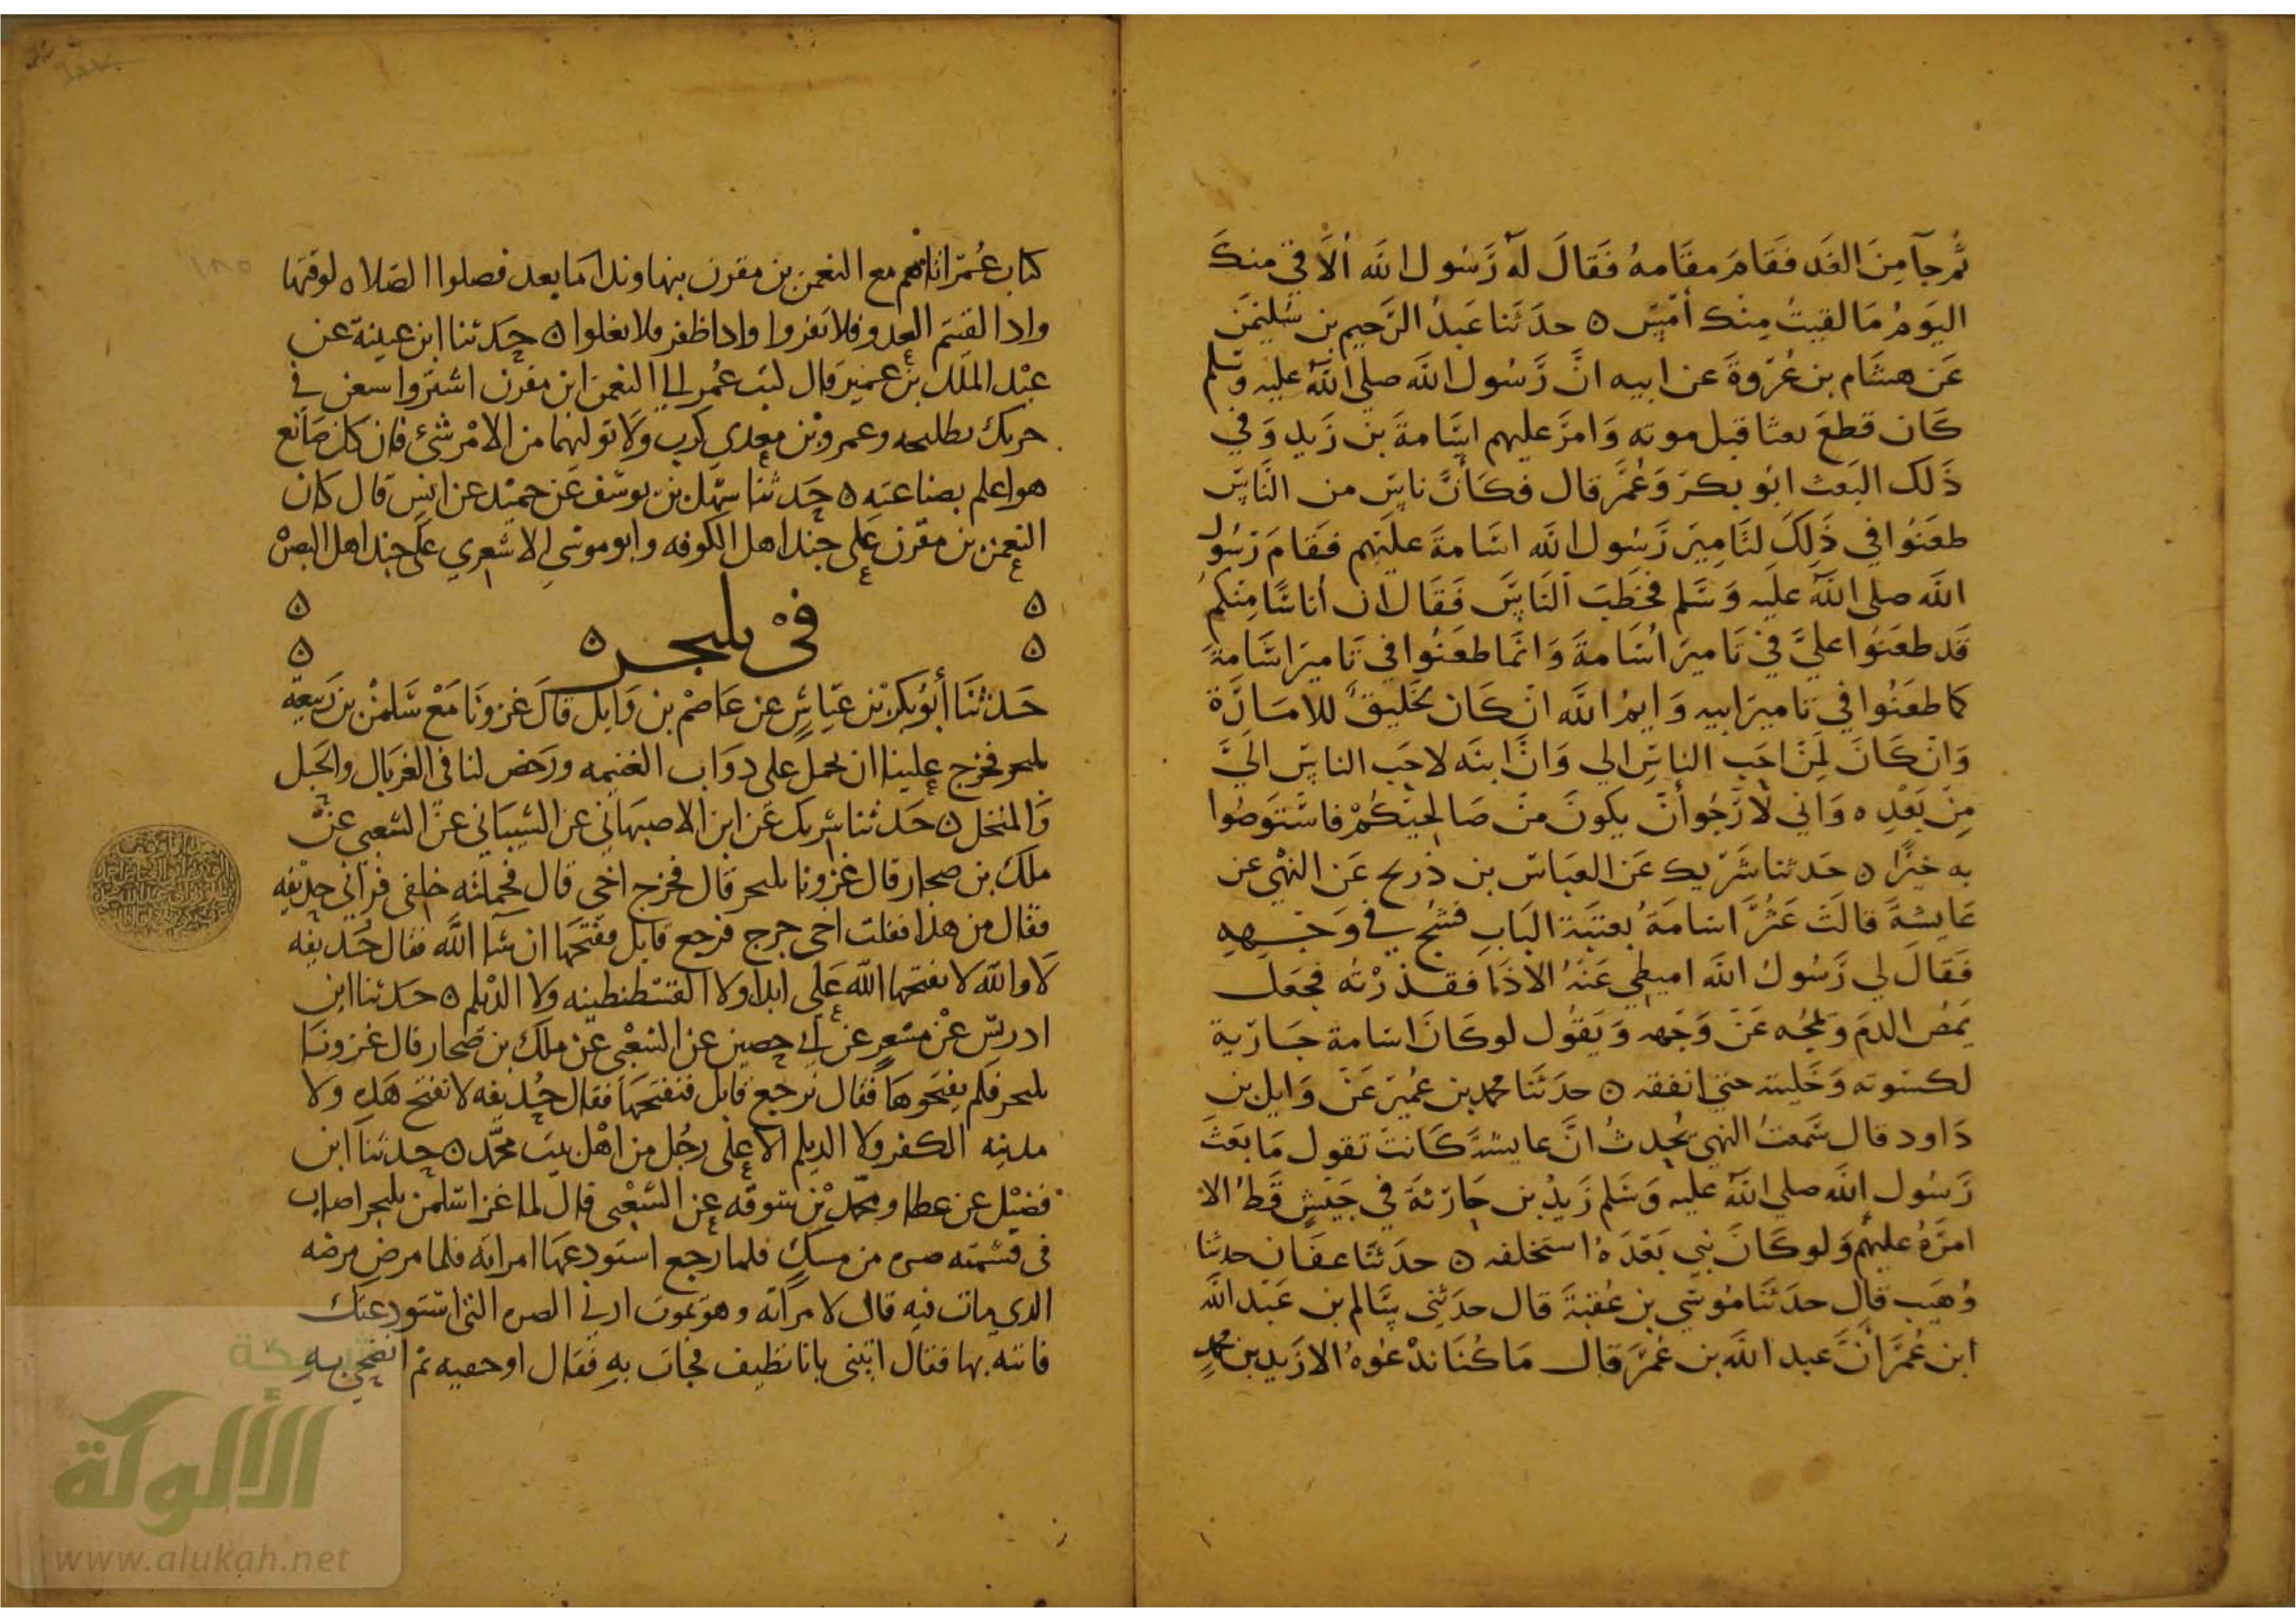 ثم جآ من الغد فقام مقامه فقال له رسول الله ألاقي منك
اليوم ما لقيت منك أمس ه حدثنا عبد الرحيم بن سليمن
عن هشام بن عروة عن ابيه ان رسول الله صلى الله عليه وسلم
كان قطع بعثا قبل موته وامر عليهم اسامة بن زيد وفي
ذلك البعث ابو بكر وعمر قال فكأن ناس من الناس
طعنوا في ذلك لتامير رسول الله اسامة عليهم فقام رسول
الله صلى الله عليه وسلم فخطب الناس فقال ان أناسا منكم
قد طعنوا علي في تامير أسامة وانما طعنوا في تامير اسامة
كما طعنوا في تامير ابيه وايم الله ان كان لخليق للامارة
وان كان لمن احب الناس الي وان ابنه لاحب الناس الي
من بعده واني لارجوا أن يكون من صالحيكم فاستوصوا
به خيرا ه حدثنا شريك عن العباس بن ذريح عن البهي عن
عايشة قالت عثر اسامة بعتبة الباب فشج في وجهه
فقال لي رسول الله اميطي عنه الاذا فقذرته فجعل
يمص الدم ويمجه عن وجهه ويقول لو كان اسامة جارية
لكسوته وحليته حتى انفقه ه حدثنا محمد بن عمير عن وايل بن
داود قال سمعت البهي يحدث ان عايشة كانت تقول ما بعث
رسول الله صلى الله عليه وسلم زيد بن حارثة في جيش قط الا
امره عليهم ولو كان بقي بعده استخلفه ه حدثنا عفان حدثنا
وهيب قال حدثنا موسى بن عقبة قال حدثني سالم بن عبد الله
ابن عمر أن عبد الله بن عمر قال ما كنا ندعوه الا زيد بن محمد
كتاب عمر اتاهم مع النعمن بن مقرن بنهاوند اما بعد فصلوا الصلاه لوقتها
واذا لقيتم العدو فلا تفروا واذا ظفرتم فلا تغلوا ه حدثنا ابن عيينة عن
عبد الملك بن عمير قال كتب عمر الى النعمن ابن مقرن استشر واستعن في
حربك بطليحه وعمرو بن معدي كرب ولا تولهما من الامر شئ فان كل صانع
هو اعلم بصناعته ه حدثنا سهل بن يوسف عن حميد عن انس قال كان
النعمن بن مقرن على جند اهل الكوفه وابو موسى الاشعري على جند اهل البصره
في بلنجر ه
حدثنا أبو بكر بن عياش عن عاصم بن وايل قال غزونا مع سلمن بن ربيعه
بلنجر فحرج علينا ان نحمل على دواب الغنيمه ورخص لنا في الغربال والحبل
والمنخل ه حدثنا شريك عن ابن الاصبهاني عن الشيباني عن الشعبي عن
ملك بن صحار قال غزونا بلنجر قال فخرج اخي قال فحملته خلفي فرآني حذيفه
فقال من هذا فقلت اخي جرح فرجع قابل مفتتحها ان شآ الله فقال حذيفه
لا والله لا يفتحها الله علي ابدا ولا القسطنطينه ولا الديلم ه حدثنا ابن
ادريس عن مسعر عن ابي حصين عن الشعبي عن ملك بن صحار قال غزونا
بلنجر فلم يفتحوها فقال نرجع قابل فنفتحها فقال حذيفه لا تفتح هذه ولا
مدينه الكفر ولا الديلم الا على رجل من اهل بيت محمد ه حدثنا ابن
فضيل عن عطا ومحمد بن سوقه عن الشعبي قال لما غزا سلمن بلنجر اصاب
في قسمته صره من مسك فلما رجع استودعها امراته فلما مرض مرضه
الذي مات فيه قال لامرأته وهو يموت اريني الصره التي استودعتك
فاتته بها فقال ائتني بانا نظيف فجات به فقال اوجفيه ثم انضحي به
شبكة
الألوكة
www.alukah.net